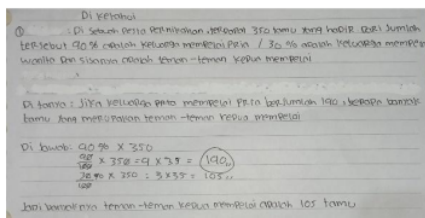 Di Ketahui
① : Di sebuah Pesta Pernikahan, terdapat 350 tamu yang hadir Dari Jumlah
tersebut 40% adalah keluarga mempelai Pria / 30% adalah keluarga mempelai
wanita Dan sisanya adalah teman-teman kedua mempelai
Di tanya: Jika keluarga mempelai Pria berjumlah 140, berapa banyak
tamu yang merupakan teman-teman kedua mempelai
Di Jawab: 40% x 350
40/100 x 350 = 4 x 35 = 140,,
30% x 350 = 3 x 35 = 105,,
100
Jadi banyaknya teman-teman kedua mempelai adalah 105 tamu